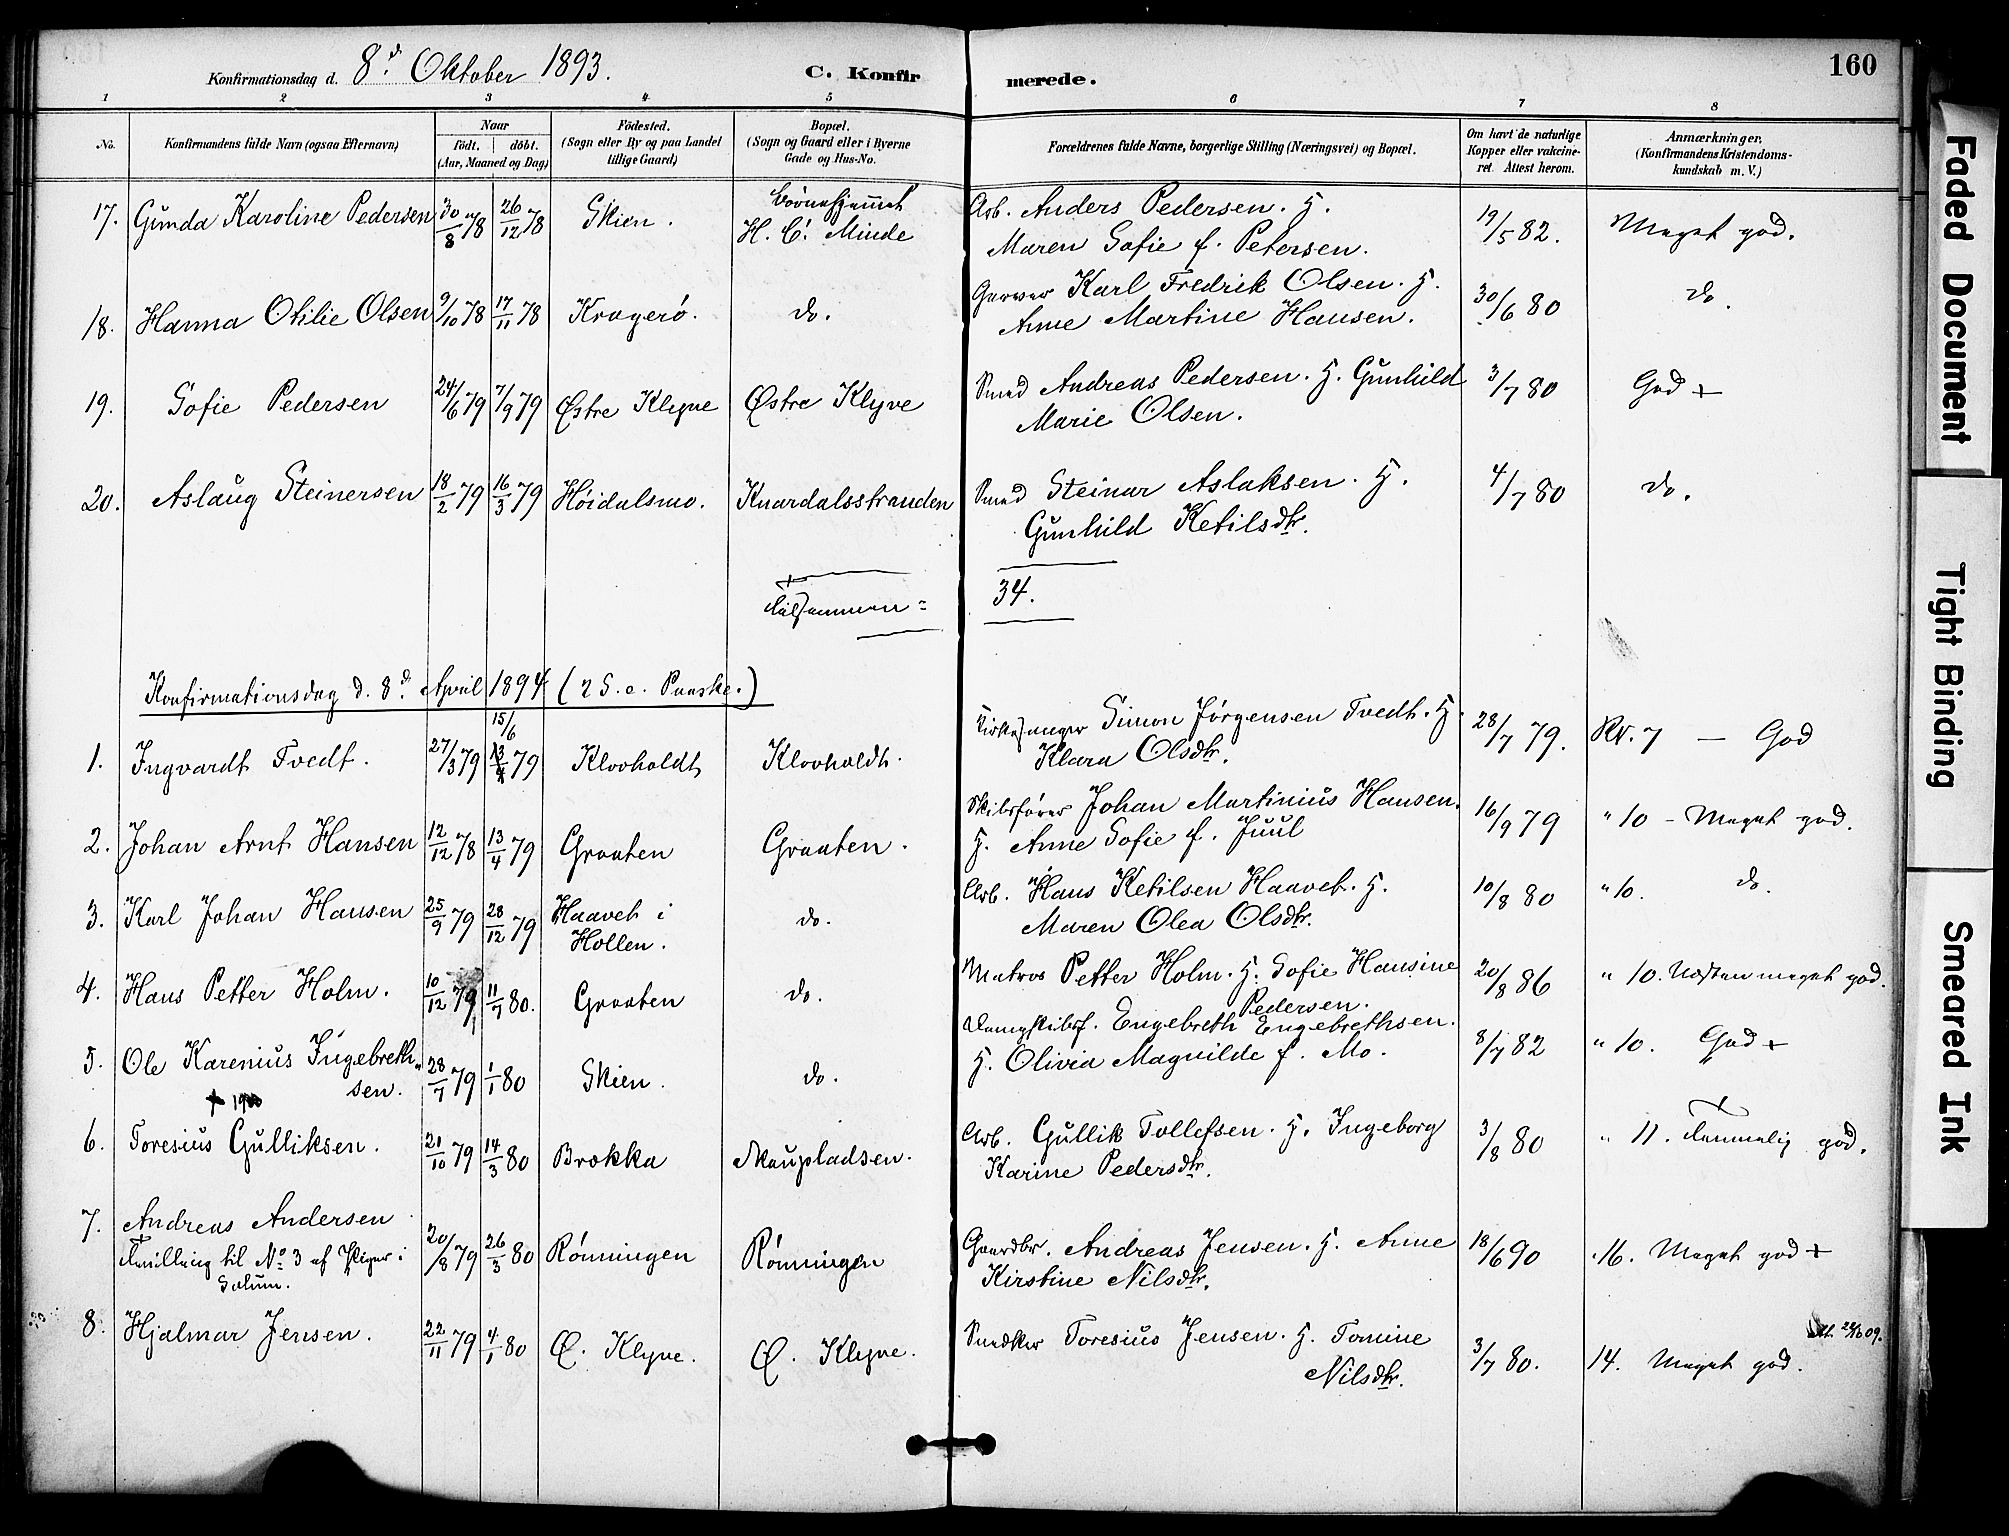 Konfirmationsdag d. 8d. Oktober 1893. C. Konfirmerede. 160
1 2 3 4 5 6 7 8
No. Konfirmandens fulde Navn (ogsaa Efternavn) Naar født. døbt. (Aar, Maaned og Dag) Fødested. (Sogn eller By og paa Landet tillige Gaard) Bopæl. (Sogn og Gaard eller i Byerne Gade og Hus-No. Forældrenes fulde Navne, borgerlige Stilling (Næringsvei) og Bopæl. Om havt de naturlige Kopper eller vakcineret. Attest herom. Anmærkninger, (Konfirmandens Kristendomskundskab m. V.)
17. Gunda Karoline Pedersen 30/8 78 26/12 78 Skien. Børnehjemmet H. C. Minde Arb. Anders Pedersen. H. Maren Sofie f. Petersen. 19/5 82. Meget god.
18. Hanna Otilie Olsen 9/10 78 17/11 78 Kragerø. do. Garver Karl Fredrik Olsen. H. Anne Martine Hansen. 30/6 80 do.
19. Sofie Pedersen 24/6 79 7/9 79 Østre Klyve Østre Klyve Smed Andreas Pedersen. H. Gunhild Marie Olsen. 3/7 80 God +
20. Aslaug Steinersen 18/2 79 16/3 79 Høidalsmo. Knardalsstranden Smed Steinar Aslaksen. H. Gunhild Ketilsdtr. 4/7 80 do.
Tilsammen = 34.
Konfirmationsdag d. 8d. April 1894 (2 S. e. Paaske.)
1. Ingvardt Tvedt. 27/3 79 15/6 13/4 79 Klovholdt Klovholdt. Kirkesanger Simon Jørgensen Tvedt. H. Klara Olsdtr. 28/7 79. Kv. 7 — God
2. Johan Arnt Hansen 12/12 78 13/4 79 Graaten Graaten. Skibsfører Johan Martinius Hansen. H. Anne Sofie f. Juul 16/9 79 " 10 - Meget god.
3. Karl Johan Hansen 25/9 79 28/12 79 Haavet i Hollen. do. Arb. Hans Ketilsen Haavet. H. Maren Olea Olsdtr. 10/8 80 " 10. do.
4. Hans Petter Holm. 10/12 79 11/7 80. Graaten do. Matros Petter Holm. H. Sofie Hansine Pedersen. 20/8 86 " 10. Næsten meget god.
5. Ole Karenius Ingebreth„sen. 28/7 79 1/1 80 Skien. do. Dampskibsf. Engebreth Engebrethsen. H. Olivia Magnilde f. Mo. 8/7 82 " 10. God +
† 1900
6. Toresius Gulliksen. 21/10 79 14/3 80 Brokka Moupladsen. Arb. Gullik Tollefsen. H. Ingeborg Karine Pedersdtr. 3/8 80 " 11. Temmelig god.
7. Andreas Andersen. Tvilling til No. 3 af Piger i Solum. 20/8 79 26/3 80 Rønningen Rønningen Gaardbr. Andreas Jensen. H. Anne Kirstine Nilsdtr. 18/6 90 " 16. Meget god +
8. Hjalmar Jensen. 22/11 79 4/1 80 Ø. Klyve. Ø. Klyve. Snedker Toresius Jensen. H. Tomine Nilsdtr. 3/7 80. 14. Meget god.
Faded Document
Tight Binding
Smeared Ink